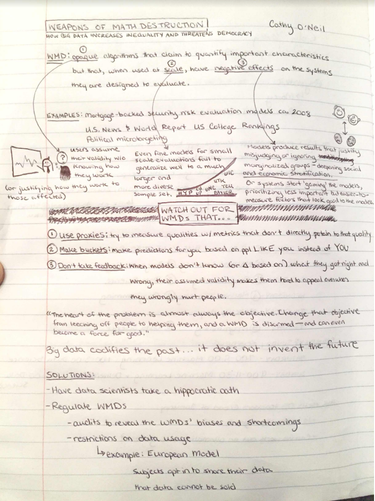 WEAPONS OF MATH DESTRUCTION
Cathy O'Neil
HOW BIG DATA INCREASES INEQUALITY AND THREATENS DEMOCRACY
WMD: opaque algorithms that claim to quantify important characteristics
but that, when used at scale, have negative effects on the systems
they are designed to evaluate.
EXAMPLES: mortgage-backed security risk evaluation models
U.S. News & World Report US College Rankings
Political microtargeting
① users assume
their validity w/o
knowing how
they work
(or justifying how they work to
those affected)
Even fine models for small
scale evaluations fail to
generalize well to a much
larger and
more diverse
sample set
Models produce results that justify
or ignoring
marginalized groups - deepening social
and economic stratification.
Or systems start "gaming" the models,
prioritizing less important
measure factors that look good to the models
WATCH OUT FOR
WMDs THAT...
① Use proxies: try to measure qualities w/ metrics that don't directly pertain to that quality
② Make buckets: make predictions for you, based on ppl LIKE you instead of YOU
③ Don't take feedback: When models don't know (or Δ based on) what they got right and
wrong, their assumed validity makes them hard to appeal when
they wrongly hurt people.
"The heart of the problem is almost always the objective. Change that objective
from leeching off people to helping them, and a WMD is disarmed—and can even
become a force for good."
Big data codifies the past... it does not invent the future
SOLUTIONS:
- Have data scientists take a hippocratic oath
- Regulate WMDs
- audits to reveal the WMDs' biases and shortcomings
- restrictions on data usage
↳ example: European Model
Subjects opt in to share their data
that data cannot be sold